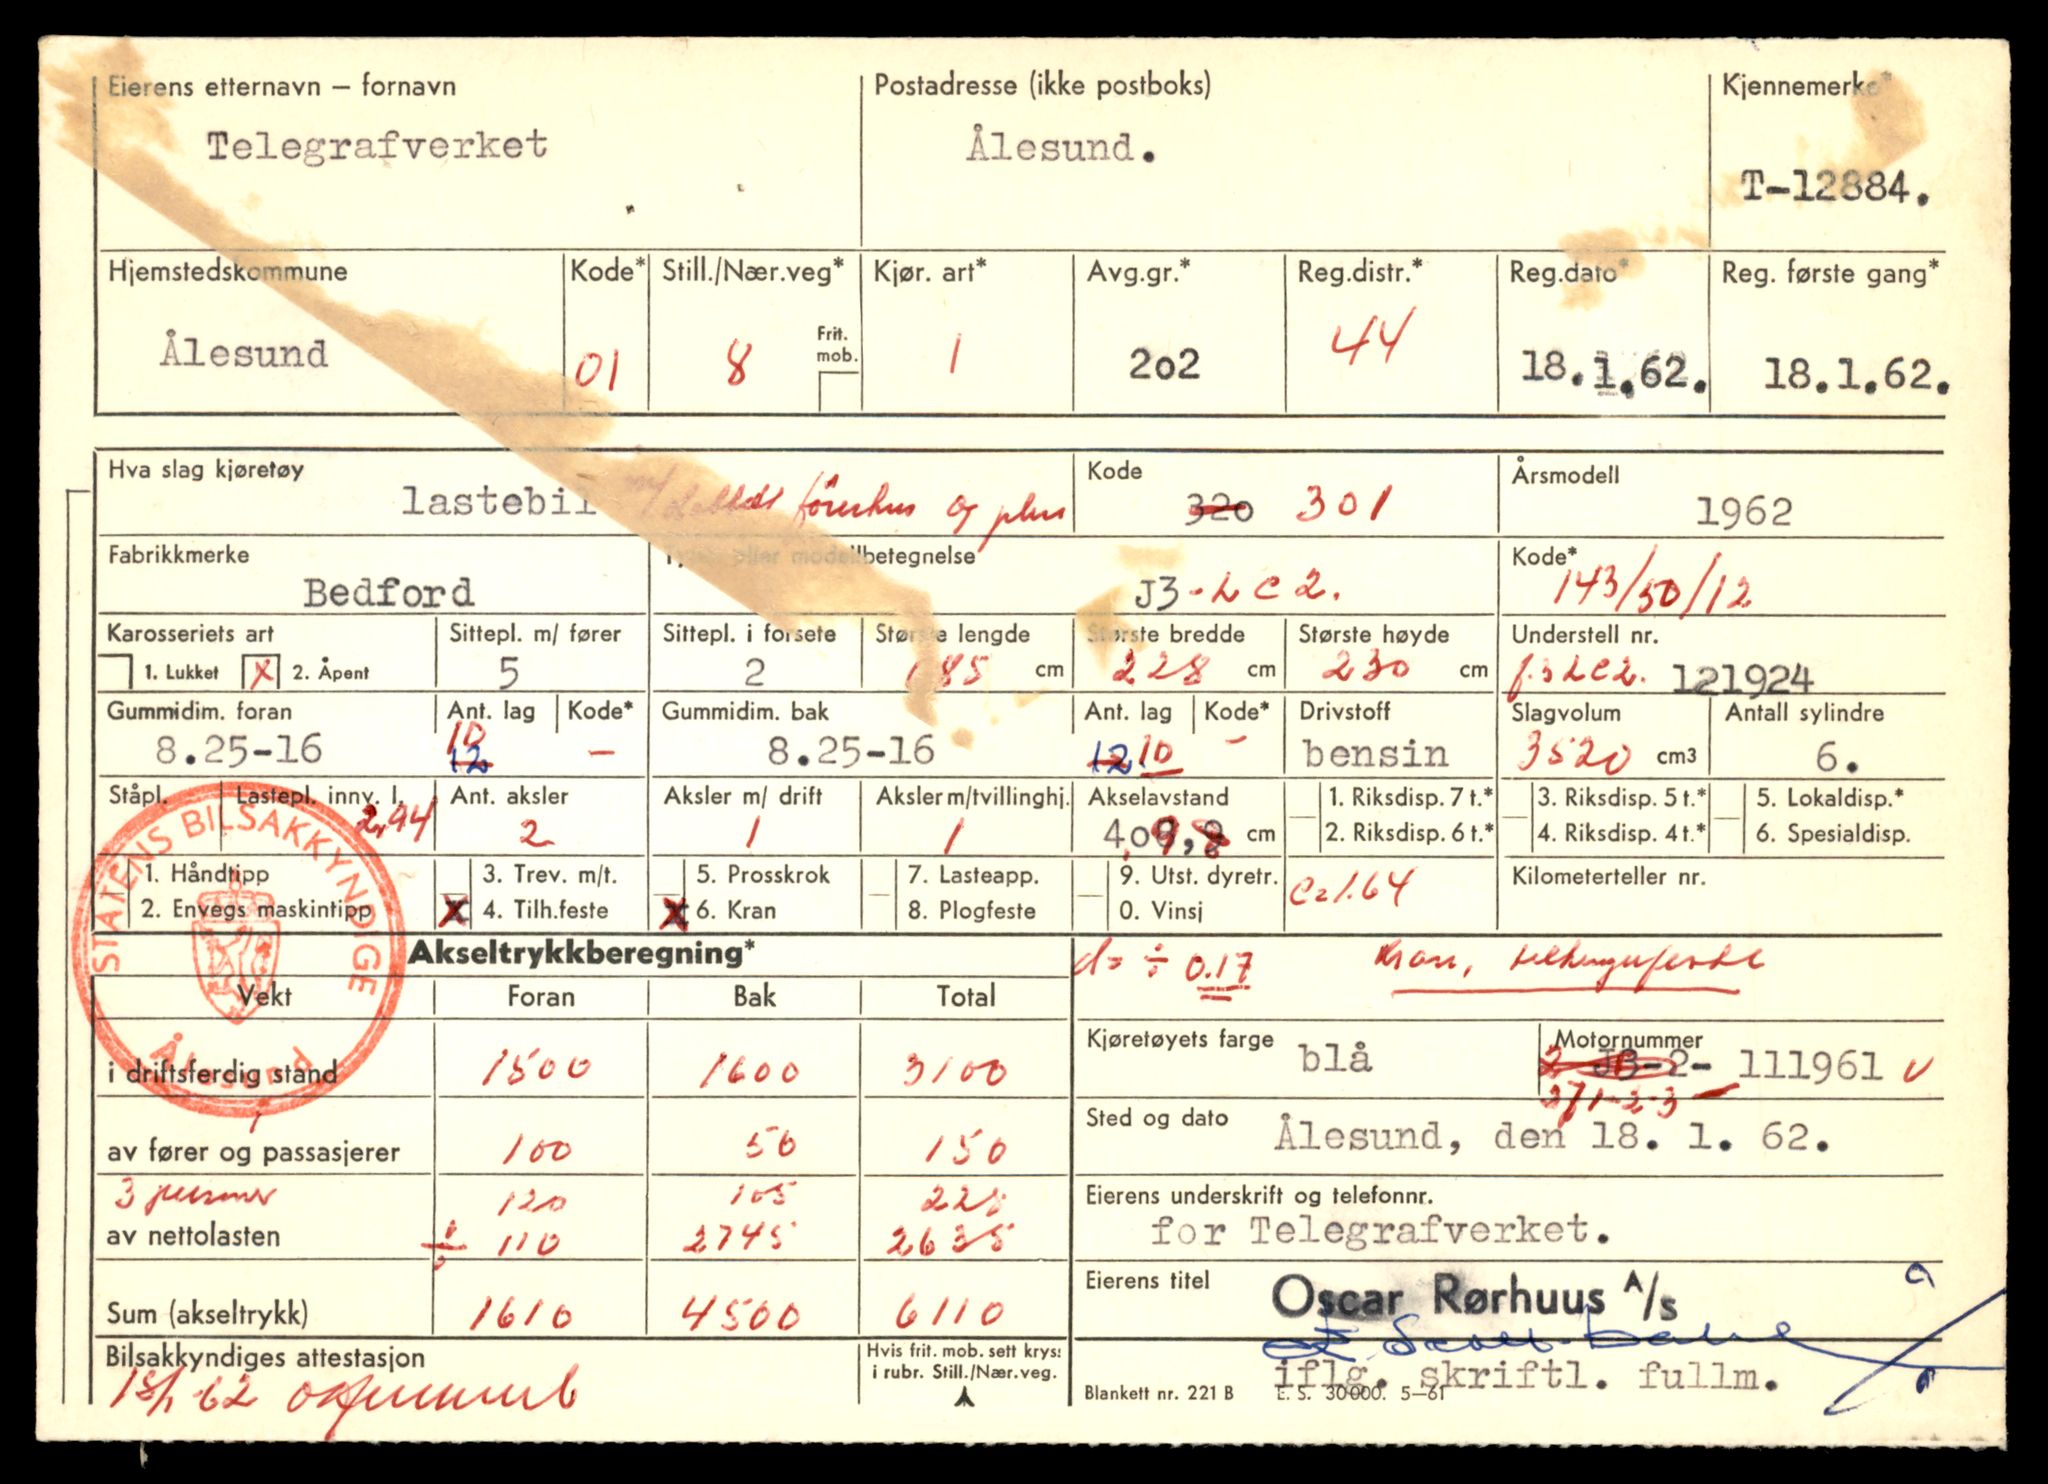 Eierens etternavn – fornavn Postadresse (ikke postboks) Kjennemerke*
Telegrafverket Ålesund. T-12884.
Hjemstedskommune Kode* Still./Nær.veg* Kjør. art* Avg.gr.* Reg.distr.* Reg.dato* Reg. første gang*
Ålesund 01 8 Frit. mob. 1 202 44 18.1.62. 18.1.62.
Hva slag kjøretøy Kode Årsmodell
lastebil m/ dobbelt førerhus og plan 320 301 1962
Fabrikkmerke Type eller modellbetegnelse Kode*
Bedford J3-LC2. 143/50/12
Karosseriets art Sittepl. m/ fører Sittepl. i forsete Største lengde Største bredde Største høyde Understell nr.
1. Lukket X 2. Åpent 5 2 685 cm 228 cm 230 cm J3LC2. 121924
Gummidim. foran Ant. lag Kode* Gummidim. bak Ant. lag Kode* Drivstoff Slagvolum Antall sylindre
8.25-16 12 10 – 8.25-16 12 10 – bensin 3520 cm3 6.
Ståpl. Lastepl. innv. l. Ant. aksler Aksler m/ drift Aksler m/tvillinghj. Akselavstand 1. Riksdisp. 7 t.* 3. Riksdisp. 5 t.* 5. Lokaldisp.*
2,94 2 1 1 cm 2. Riksdisp. 6 t.* 4. Riksdisp. 4 t.* 6. Spesialdisp.
1. Håndtipp 3. Trev. m/t. 5. Prosskrok 7. Lasteapp. 9. Utst. dyretr. Kilometerteller nr.
2. Envegs maskintipp X 4. Tilh.feste X 6. Kran 8. Plogfeste 0. Vinsj C=1.64
STATENS BILSAKKYNDIGE
Ålesund
Akseltrykkberegning* d = ÷ 0.17 Kran, tilhengerfeste
Vekt Foran Bak Total
Kjøretøyets farge blå Motornummer
J3-2- 111961 v
271-2-3 –
i driftsferdig stand 1500 1600 3100
Sted og dato Ålesund, den 18. 1. 62.
av fører og passasjerer 100 50 150
3 personer 120 105 225
Eierens underskrift og telefonnr.
av nettolasten ÷ 110 2745 2635
for Telegrafverket.
Eierens titel Oscar Rørhuus A/s
Sum (akseltrykk) 1610 4500 6110
Bilsakkyndiges attestasjon Hvis frit. mob. sett kryss i rubr. Still./Nær.veg.
18/1-62
iflg. skriftl. fullm.
Blankett nr. 221 B E. S. 30000. 5–61